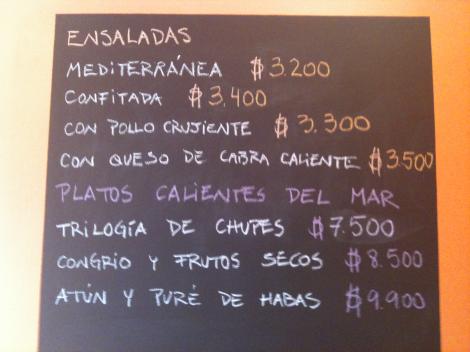 ENSALADAS
MEDITERRÁNEA $3.200
CONFITADA $3.400
CON POLLO CRUJIENTE $3.300
CON QUESO DE CABRA CALIENTE $3.500
PLATOS CALIENTES DEL MAR
TRILOGÍA DE CHUPES $7.500
CONGRIO Y FRUTOS SECOS $8.500
ATÚN Y PURÉ DE HABAS $9.900